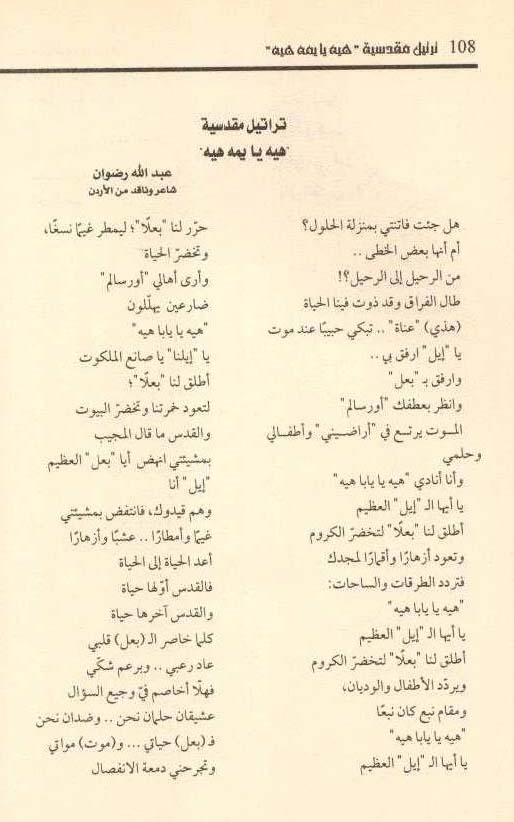 108 تراتيل مقدسية "هيه يا يمه هيه"
تراتيل مقدسية
"هيه يا يمه هيه"
عبد الله رضوان
شاعر وناقد من الأردن
هل جئت فاتنتي بمنزلة الحلول؟
أم أنها بعض الخطى ..
من الرحيل إلى الرحيل؟!
طال الفراق وقد ذوت فينا الحياة
(هذي) "عناة" .. تبكي حبيبًا عند موت
يا "إيل" ارفق بي ..
وارفق بـ "بعل"
وانظر بعطفك "أورسالم"
المــوت يرتــع في "أراضــيني" وأطفــالي
وحلمي
وأنا أنادي "هيه يا يابا هيه"
يا أيها الـ "إيل" العظيم
أطلق لنا "بعلًا" لتخضرّ الكروم
وتعود أزهارًا وأقمارًا لمجدك
فتردد الطرقات والساحات:
"هيه يا يابا هيه"
يا أيها الـ "إيل" العظيم
أطلق لنا "بعلًا" لتخضرّ الكروم
ويردّد الأطفال والوديان،
ومقام نبع كان نبعًا
"هيه يا يابا هيه"
يا أيها الـ "إيل" العظيم
حرّر لنا "بعلًا"؛ ليمطر غيمًا نسغًا،
وتخضرّ الحياة
وأرى أهالي "أورسالم"
ضارعين يهلّلون
"هيه يا يابا هيه"
يا "إيلنا" يا صانع الملكوت
أطلق لنا "بعلًا"؛
لتعود خمرتنا وتخضرّ البيوت
والقدس ما قال المجيب
بمشيئتي انهض أيا "بعل" العظيم
"إيل" أنا
وهم قيدوك، فانتفض بمشيئتي
غيمًا وأمطارًا .. عشبًا وأزهارًا
أعد الحياة إلى الحياة
فالقدس أوّلها حياة
والقدس آخرها حياة
كلما خاصر الـ (بعل) قلبي
عاد رعبي .. وبرعم شكّي
فهلّا أخاصم فيّ وجيع السؤال
عشيقان حلمان نحن .. وضدان نحن
فـ (بعل) حياتي ... و(موت) مواتي
وتجرحني دمعة الانفصال